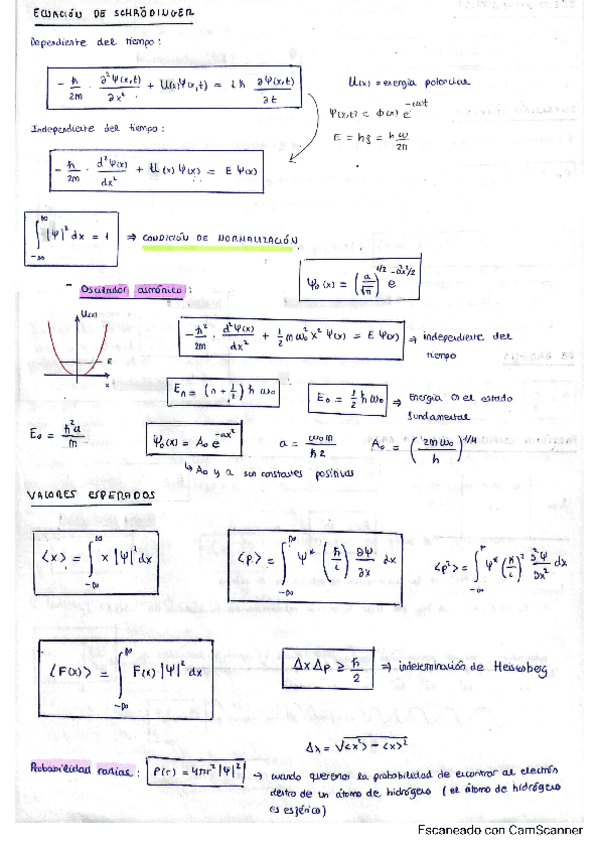 ECUACIÓN DE SCHRÖDINGER
Dependiente del tiempo:
- ħ/2m · ∂²Ψ(x,t)/∂x² + U(x)Ψ(x,t) = i ħ ∂Ψ(x,t)/∂t
U(x) = energía potencial
Ψ(x,t) = Φ(x) e^-iωt
Independiente del tiempo:
- ħ/2m · d²Ψ(x)/dx² + U(x) Ψ(x) = E Ψ(x)
∫_-∞^∞ |Ψ|² dx = 1 ⇒ CONDICIÓN DE NORMALIZACIÓN
- Oscilador armónico:
U(x)
E
x
- ħ²/2m · d²Ψ(x)/dx² + 1/2 m ω₀² x² Ψ(x) = E Ψ(x) → independiente del
tiempo
Eₙ = (n + 1/2) ħ ω₀
E₀ = 1/2 ħ ω₀ → Energía en el estado
fundamental
E₀ = ħ²a/m
Ψ₀(x) = A₀ e^-ax²
a = ω₀m/ħ2
A₀ = (2mω₀/h)^1/4
↳ A₀ y a son constantes positivas
VALORES ESPERADOS
⟨x⟩ = ∫_-∞^∞ x |Ψ|² dx
⟨p⟩ = ∫_-∞^∞ Ψ* (ħ/i) ∂Ψ/∂x dx
⟨p²⟩ = ∫ Ψ* (ħ/i)² ∂²Ψ/∂x² dx
⟨F(x)⟩ = ∫_-∞^∞ F(x) |Ψ|² dx
Δx Δp ≥ ħ/2 ⇒ indeterminación de Heisenberg
Δx = √⟨x²⟩ - ⟨x⟩²
Probabilidad radial: P(r) = 4πr² |Ψ|² → cuando queremos la probabilidad de encontrar al electrón
dentro de un átomo de hidrógeno (el átomo de hidrógeno
es esférico)
Escaneado con CamScanner